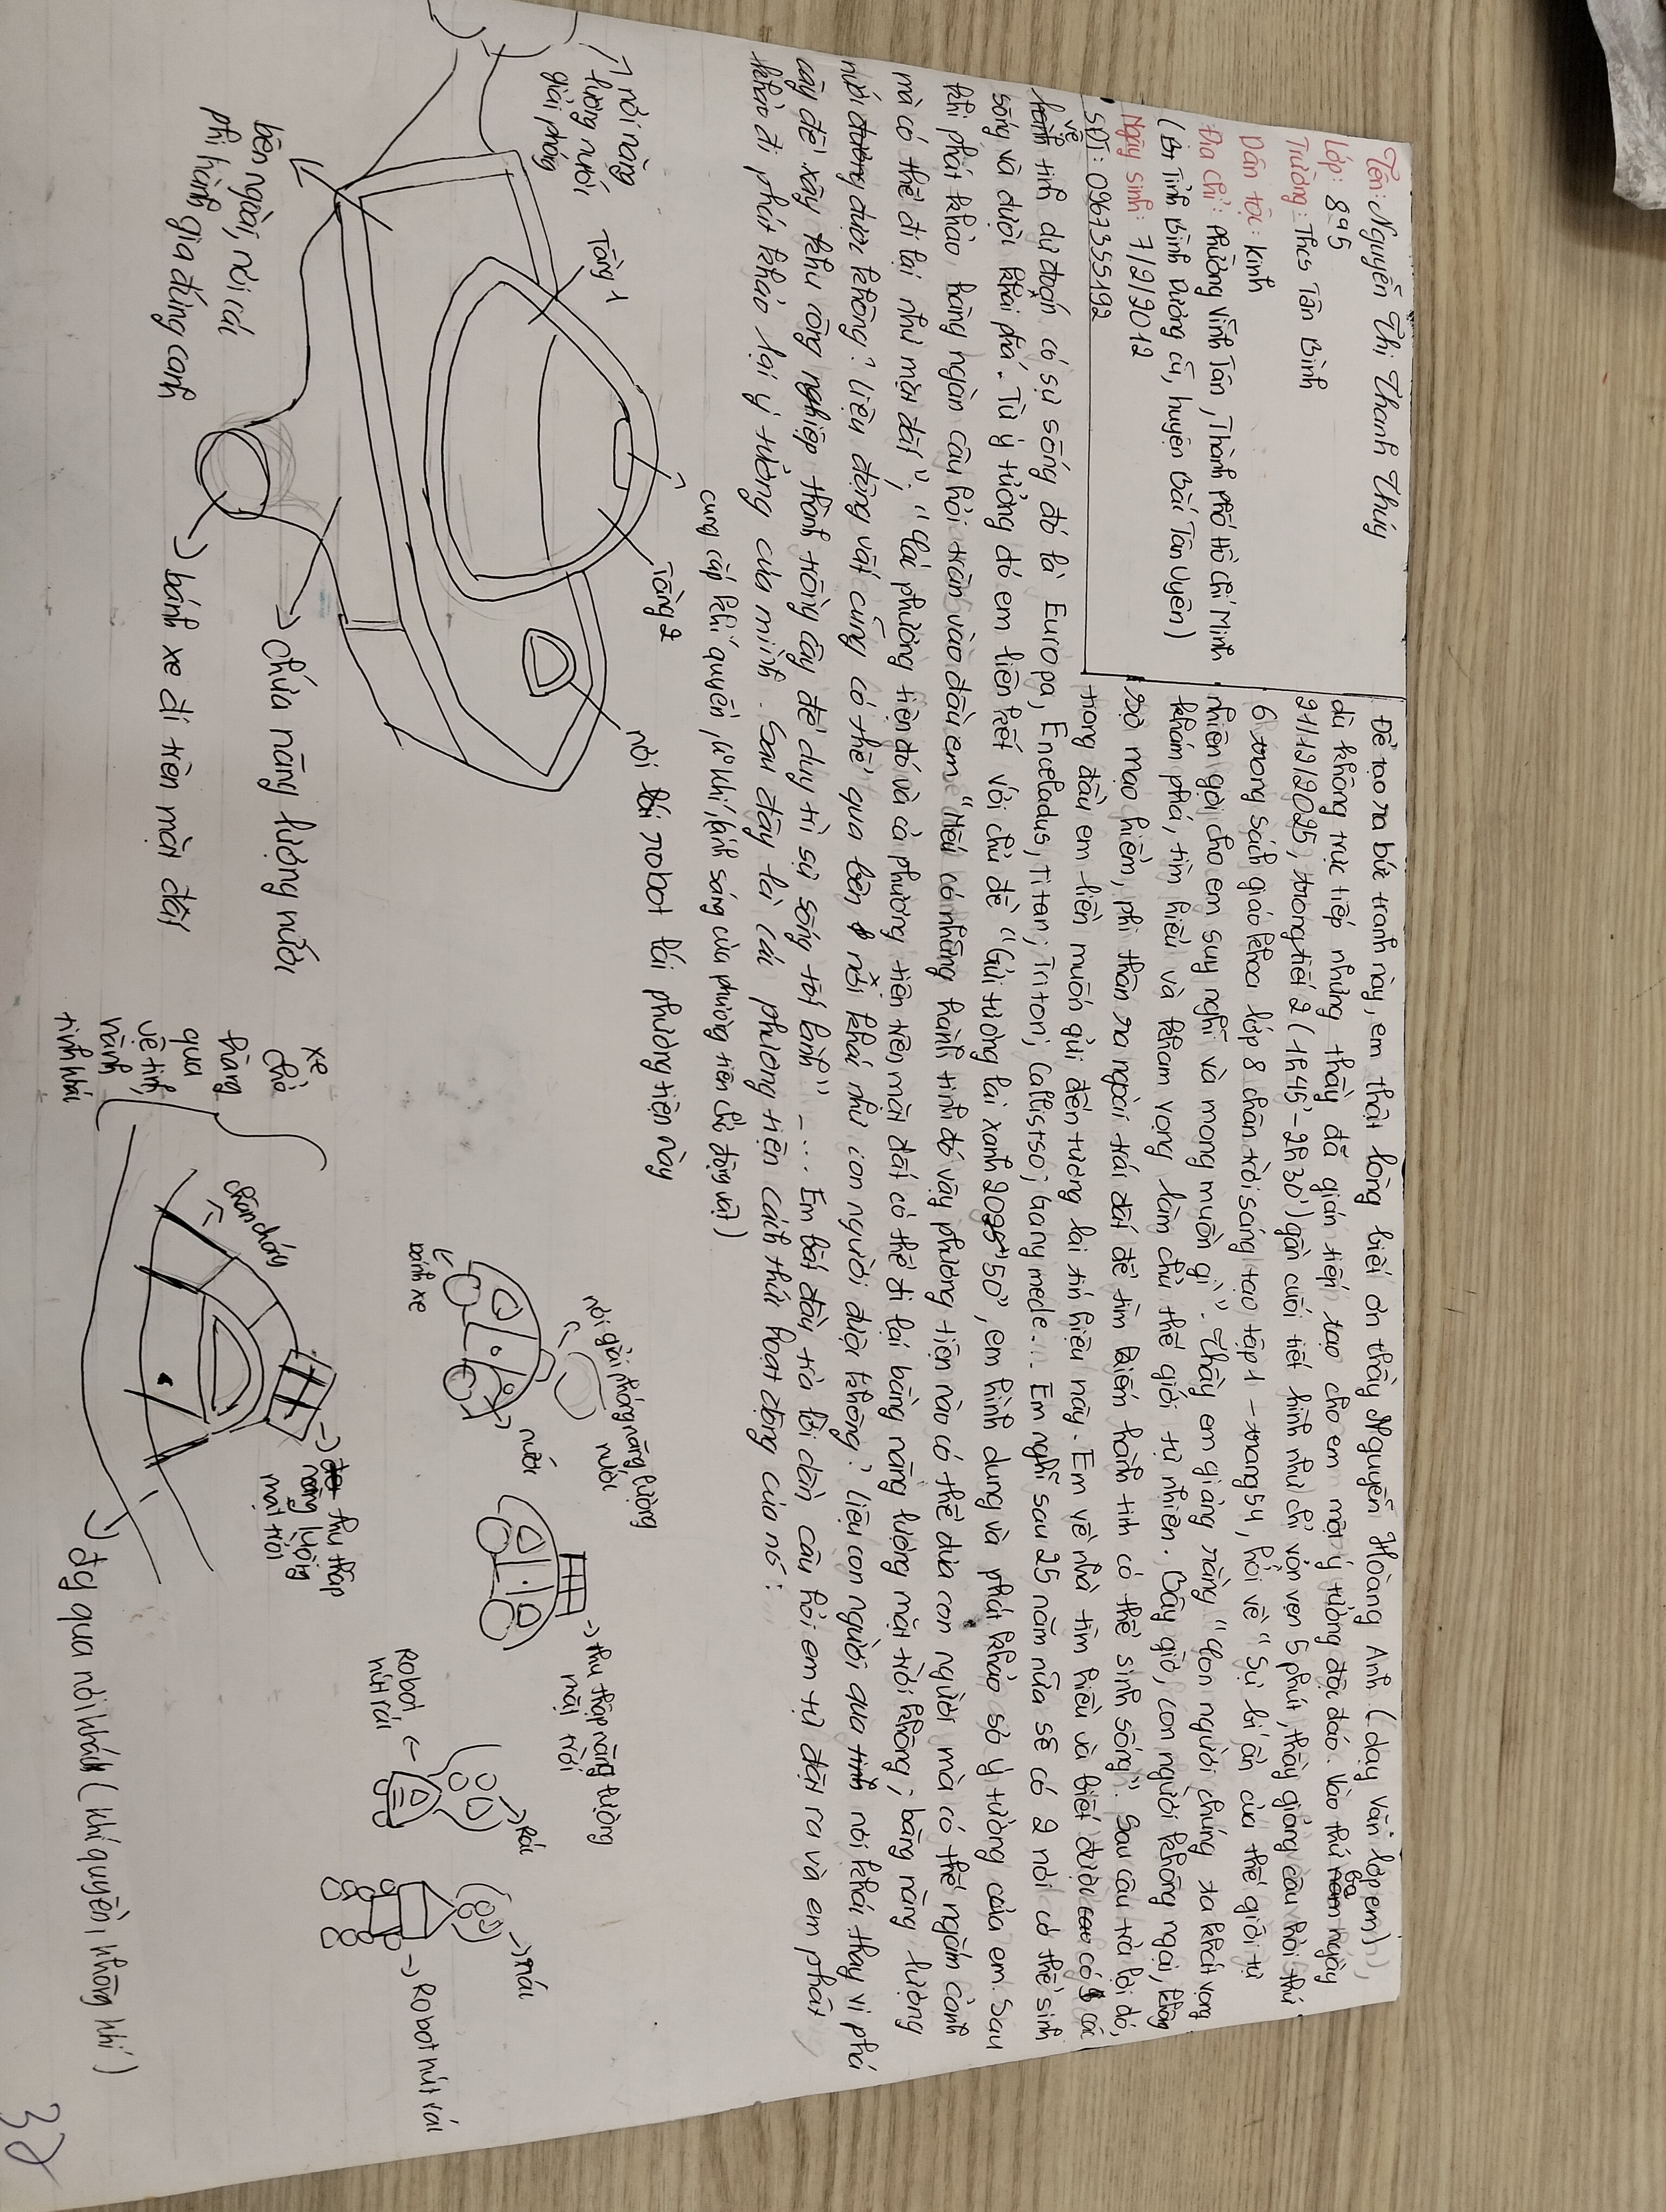 Tên: Nguyễn Thị Thanh Thúy
Lớp: 8A5
Trường: Thcs Tân Bình
Dân tộc: Kinh
Địa chỉ: Phường Vĩnh Tân, Thành phố Hồ Chí Minh
(Bt Tỉnh Bình Dương cũ, huyện Bắc Tân Uyên)
Ngày sinh: 7/2/2012
SĐT: 0967355192
Để tạo ra bức tranh này, em thật lòng biết ơn thầy Nguyễn Hoàng Anh (dạy văn lớp em),
dù không trực tiếp nhưng thầy đã gián tiếp tạo cho em một ý tưởng độc đáo. Vào thứ ba ngày
21/12/2025, trong tiết 2 (1h45'-2h30') gần cuối tiết hình như chỉ vỏn vẹn 5 phút, thầy giảng câu hỏi thứ
6 trong sách giáo khoa lớp 8 chân trời sáng tạo tập 1 - trang 54, hỏi về "Sự bí ẩn của thế giới tự
nhiên gợi cho em suy nghĩ và mong muốn gì". Thầy em giảng rằng "Con người chúng ta khát vọng
khám phá, tìm hiểu và tham vọng làm chủ thế giới tự nhiên. Bây giờ, con người không ngại, không
sợ mạo hiểm, phi thân ra ngoài trái đất để tìm kiếm hành tinh có thể sinh sống". Sau câu trả lời đó,
trong đầu em liền muốn gửi đến tương lai tín hiệu này. Em về nhà tìm hiểu và biết được có các
vệ tinh dự đoán có sự sống đó là Europa, Enceladus, Titan, Triton, Callistso, Ganymede... Em nghĩ sau 25 năm nữa sẽ có 2 nơi có thể sinh
sống và được khai phá. Từ ý tưởng đó em liên kết với chủ đề "Gửi tương lai xanh 2025+50", em hình dung và phát khảo sơ ý tưởng của em. Sau
khi phát khảo hàng ngàn câu hỏi tràn vào đầu em "Nếu có những hành tinh đó vậy phương tiện nào có thể đưa con người mà có thể ngắm cảnh
mà có thể đi lại như mặt đất"; "Cái phương tiện đó và cả phương tiện trên mặt đất có thể đi lại bằng năng lượng mặt trời không; bằng năng lượng
nước được không? Liệu động vật cũng có thể qua bên nơi khác như con người được không? Liệu con người qua nơi khác thay vì phá
cây để xây khu công nghiệp thành trồng cây để duy trì sự sống tốt lành"... Em bắt đầu trả lời dần câu hỏi em tự đặt ra và em phát
khảo đi phát khảo lại ý tưởng của mình. Sau đây là các phương tiện cách thức hoạt động của nó:
cung cấp khí quyển, khí, ánh sáng của phương tiện cho động vật)
nơi năng
lượng nước
giải phóng
Tầng 1
Tầng 2
nơi robot lái phương tiện này
bên ngoài, nơi cái
phi hành gia đứng canh
bánh xe đi trên mặt đất
chứa năng lượng nước
nơi giải phóng năng lượng
nước
bánh xe
nước
thu thập năng lượng
mặt trời
rác
Robot
hút rác
rác
Robot hút rác
xe
chở
hàng
qua
vệ tinh,
hành
tinh khác
chân chống
thu thập
năng lượng
mặt trời
đg qua nơi khác (khí quyển, không khí)